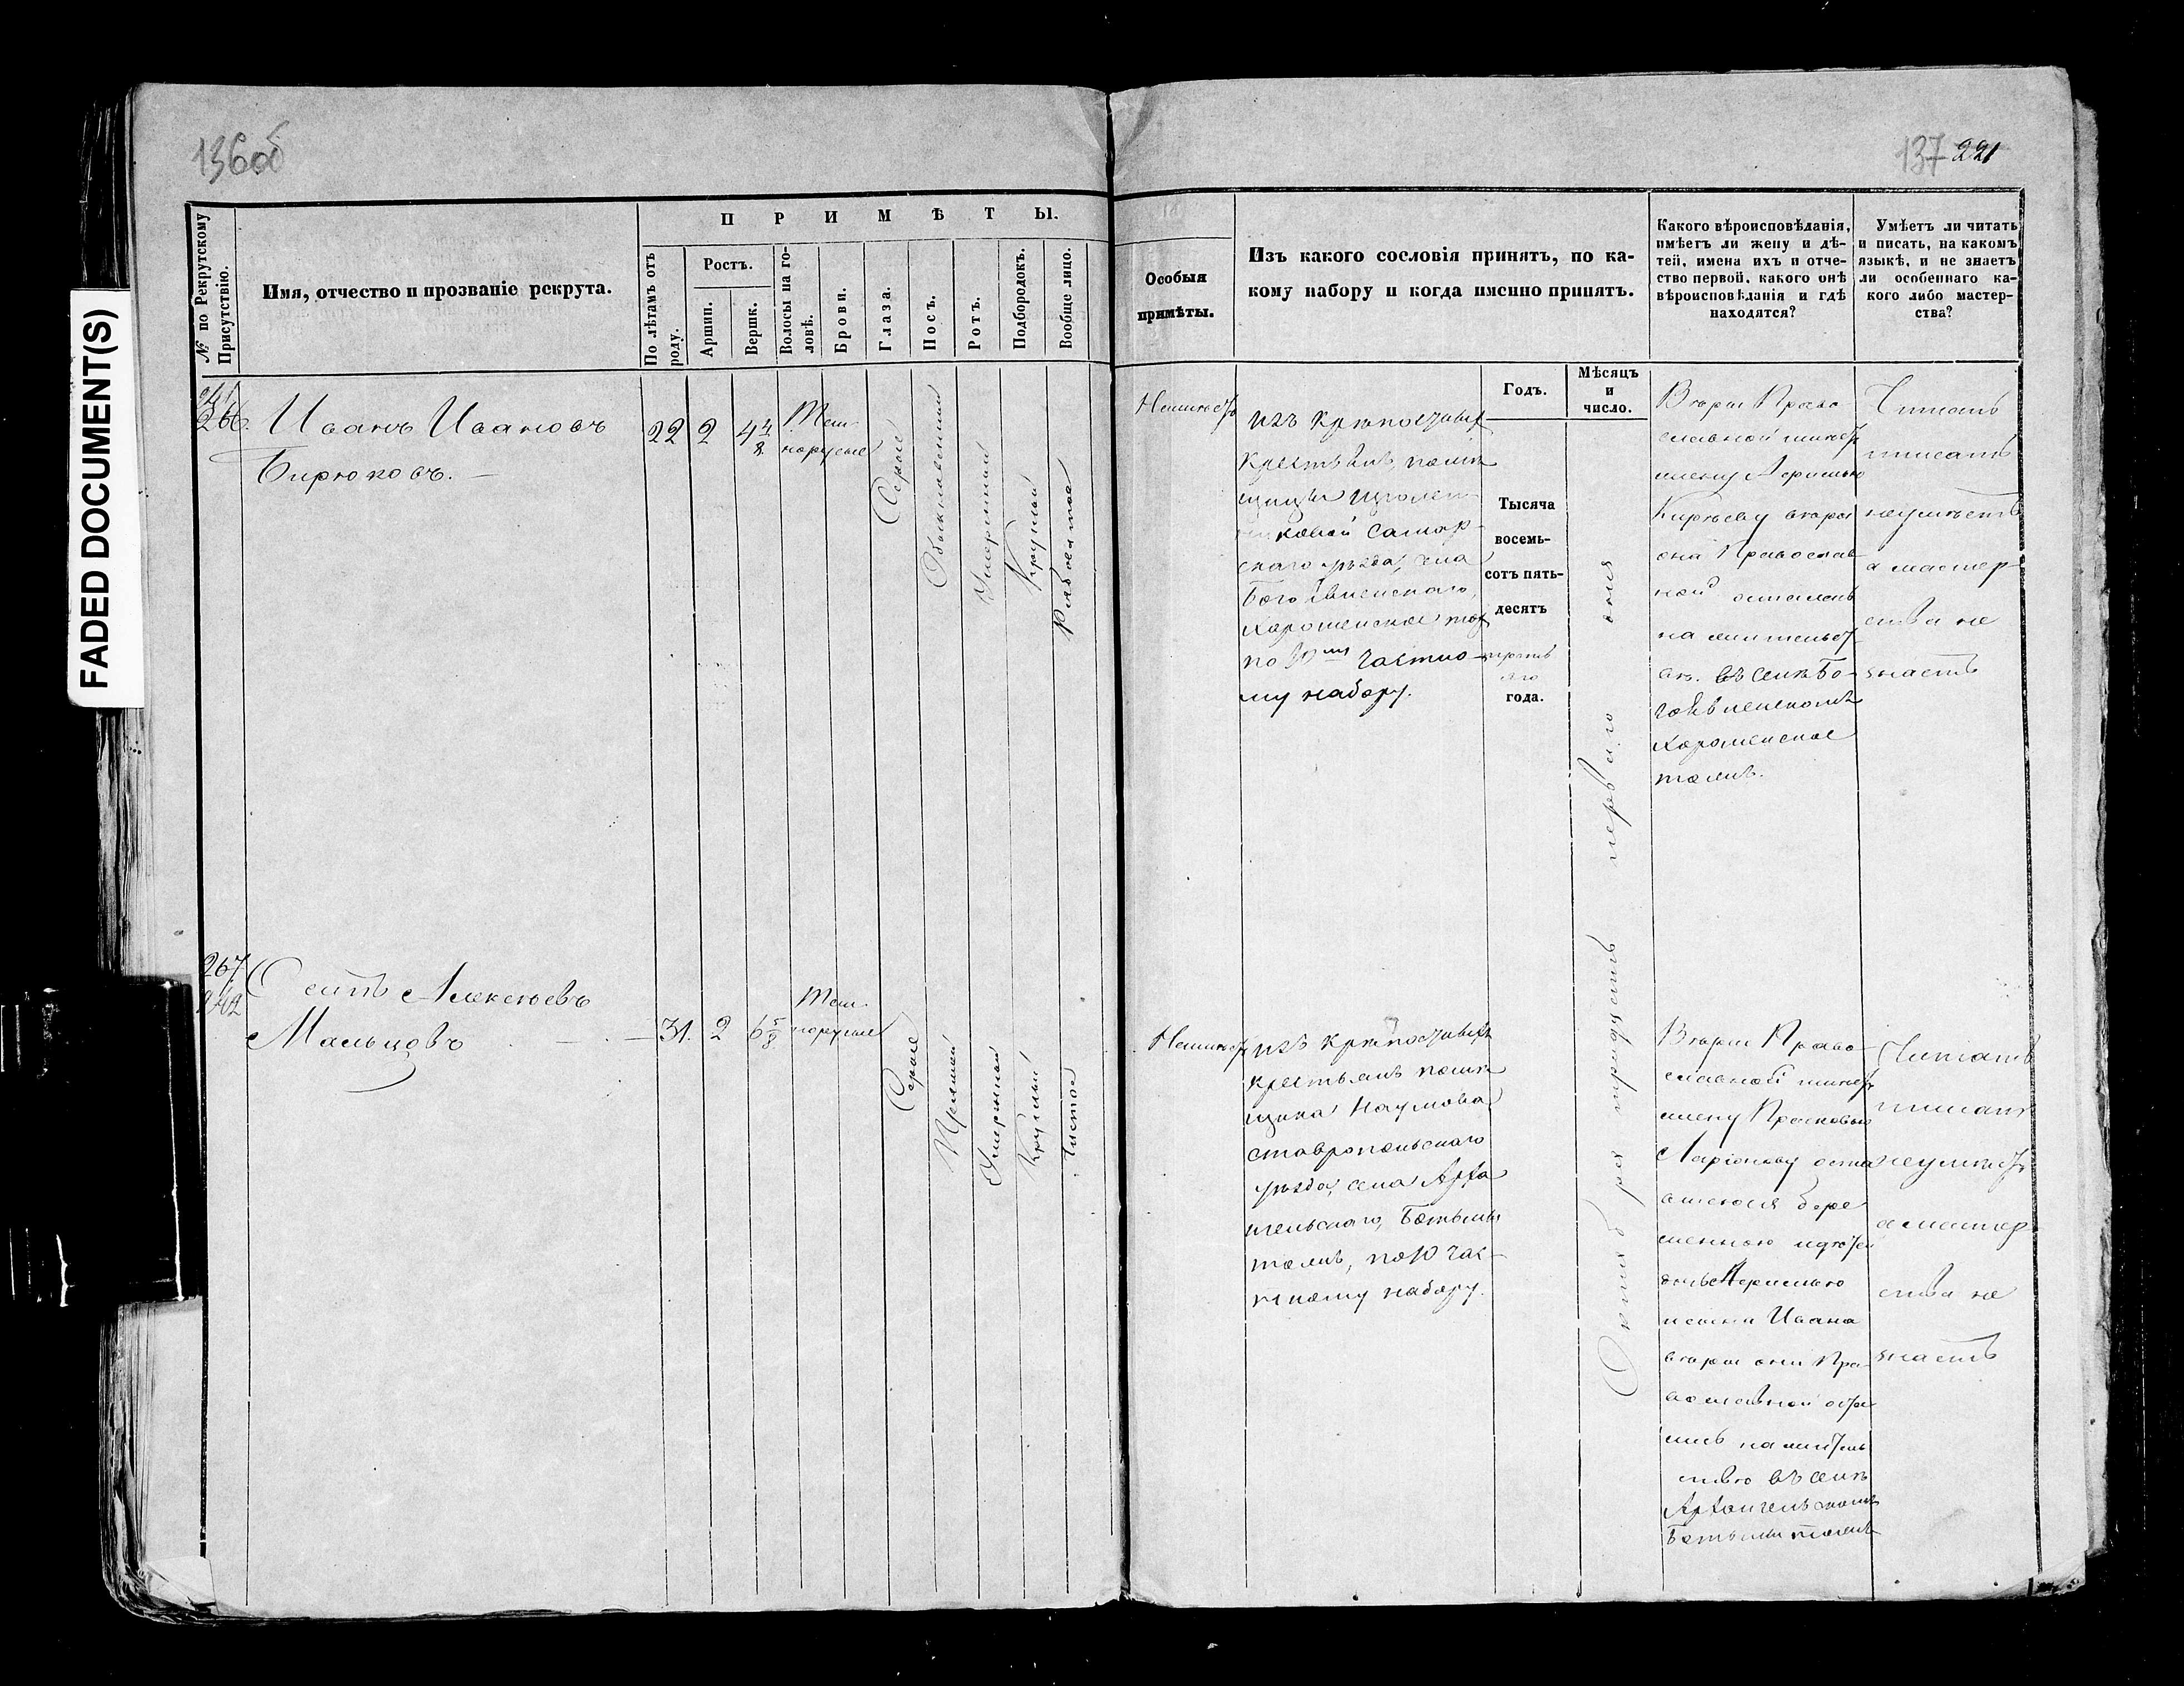 FADED DOCUMENT(S)
136об
137 221
№ по Рекрутскому Присутствію.
Имя, отчество и прозваніе рекрута.
П Р И М Ѣ Т Ы.
По лѣтамъ отъ роду.
Ростъ.
Аршин.
Вершк.
Волосы на головѣ.
Брови.
Глаза.
Носъ.
Ротъ.
Подбородокъ.
Вообще лицо.
Особыя
примѣты.
Изъ какого сословія принятъ, по ка-
кому набору и когда именно принятъ.
Какого вѣроисповѣданія,
имѣетъ ли жену и дѣ-
тей, имена ихъ и отче-
ство первой, какого онѣ
вѣроисповѣданія и гдѣ
находятся?
Умѣетъ ли читать
и писать, на какомъ
языкѣ, и не знаетъ
ли особеннаго ка-
кого либо мастер-
ства?
Годъ.
Мѣсяцъ
и
число.
241
266.
Иванъ Ивановъ
Бирюковъ.
22 2 4 4/8
Тем-
норусые
Серые
Обыкновенный
Умеренный
Круглый
Рябоватое
Неимѣетъ
изъ крѣпостныхъ
крестьянъ, помѣ
щицы
Самар-
скаго уѣзда, села
Богоявленскаго,
Хорошенское тож
по 10му частно-
му набору.
Тысяча
восемь-
сотъ пять-
десятъ
третьяго
года.
Октября тридцать перваго дня
Вѣры Право
славной имѣетъ
жену
Кирѣеву вѣры
она Православ
ной оставлена
на жительст
вѣ. въ селѣ Бо-
гоявленскомъ
Хорошенское
тожъ.
Читать
писать
неумѣетъ
а мастер-
ства не
знаетъ
267
242
Алексѣевъ
Мальцовъ
31. 2 6 5/8
Тем-
норусые
Серые
Прямой
Умеренный
Круглый
Чистое
Неимѣетъ
изъ крѣпостныхъ
крестьянъ помѣ
щика Наумова
Ставропольскаго
уѣзда, села Арха
нгельскаго,
тожъ, по 10 час-
тному набору.
Вѣры Право
славной имѣетъ
жену Прасковью
Ларіонову оста
вшеюся бере
менною и дѣтей
дочь
и сына Ивана
вѣры они Пра-
вославной оста
лись на житель
ство въ селѣ
Архангельскомъ
тожъ
Читать
писать
неумѣетъ
а мастер
ства не
знаетъ